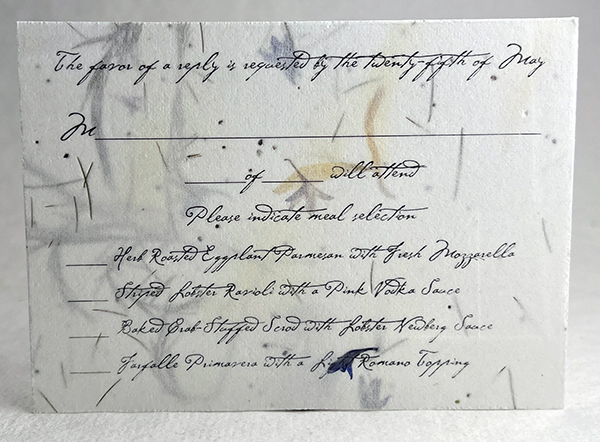 The favor of a reply is requested by the twenty-fifth of May
M
of will attend
Please indicate meal selection
Herb Roasted Eggplant Parmesan with Fresh Mozzarella
Striped Lobster Ravioli with a Pink Vodka Sauce
Baked Crab-Stuffed Scrod with Lobster Newberg Sauce
Farfalle Primavera with a Romano Topping